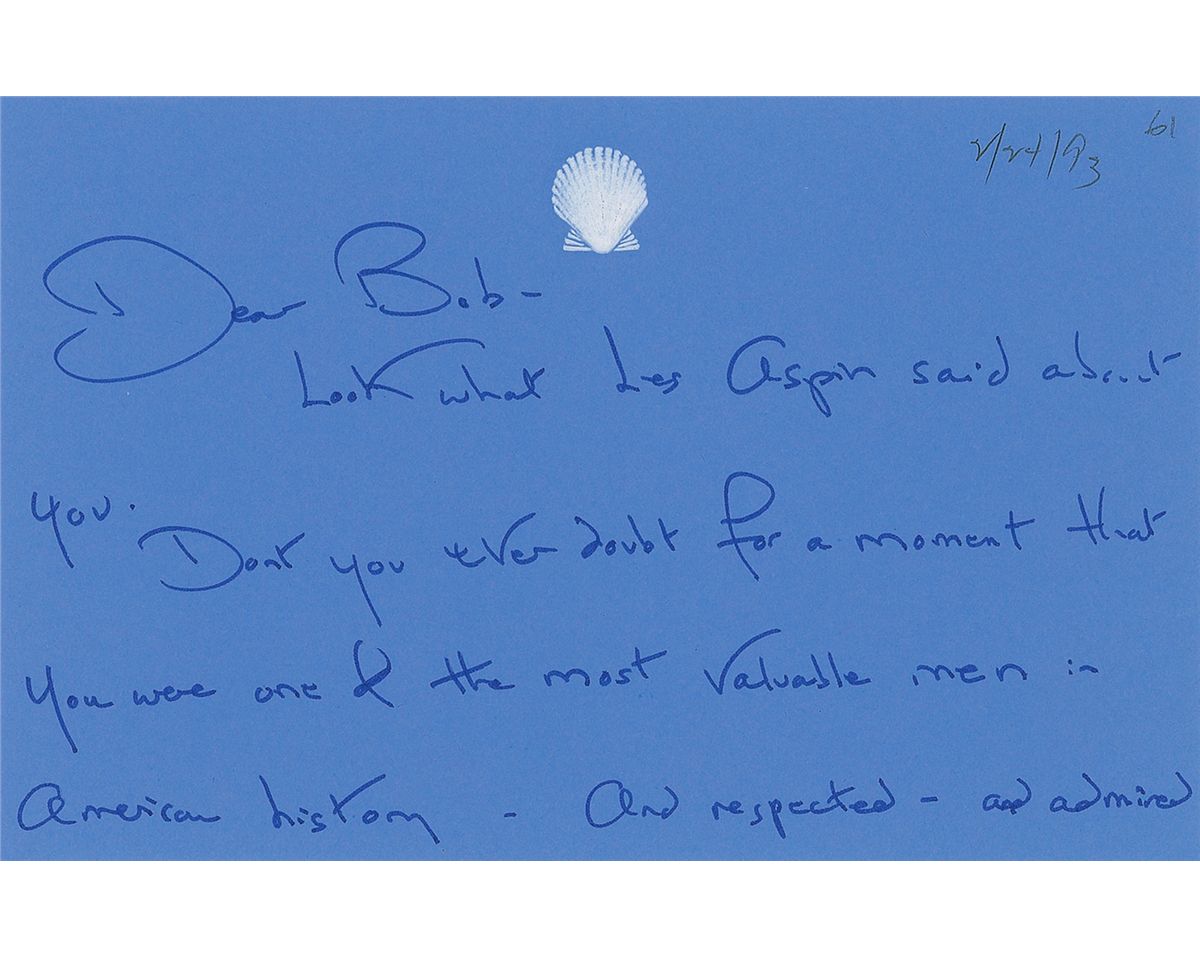 61
2/24/93
Dear Bob-
Look what Les Aspin said about
you.
Dont you ever doubt for a moment that
you were one of the most valuable men in
American history - And respected - and admired